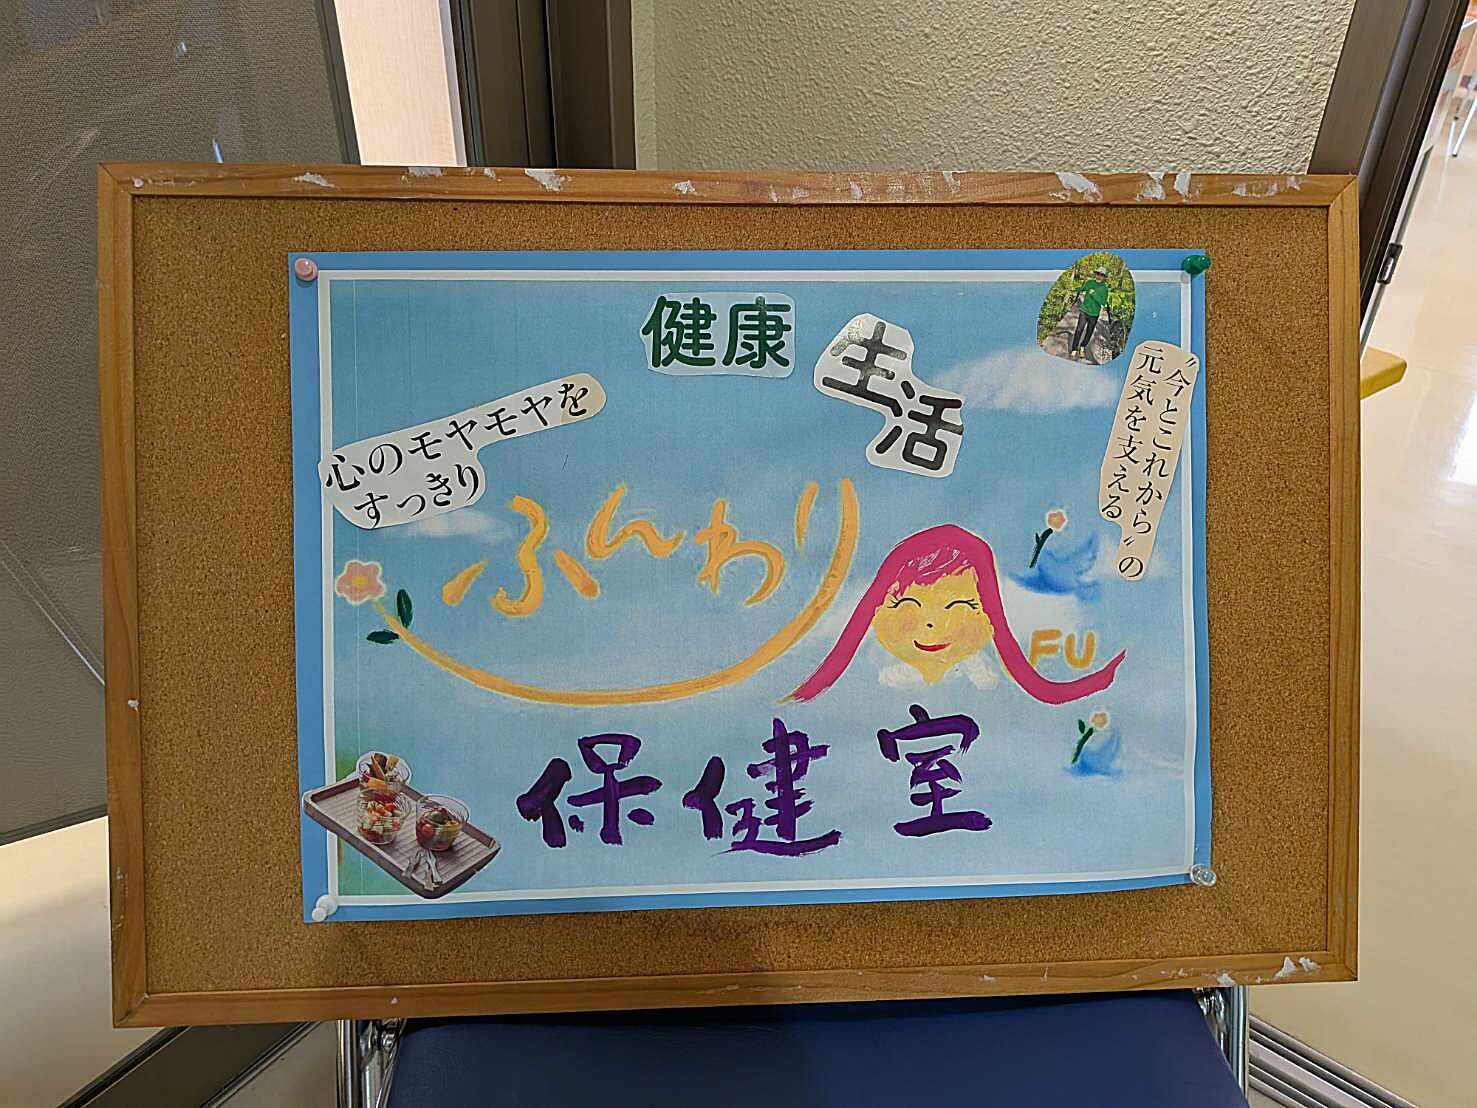 健康
生活
心のモヤモヤを
すっきり
〝今とこれから〟の
元気を支える
ふんわり
FU
保健室